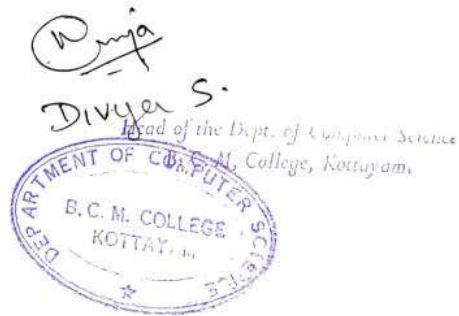 Divya S.
Head of the Dept. of Computer Science
B. C. M. College, Kottayam.
DEPARTMENT OF COMPUTER SCIENCE
B. C. M. COLLEGE
KOTTAY